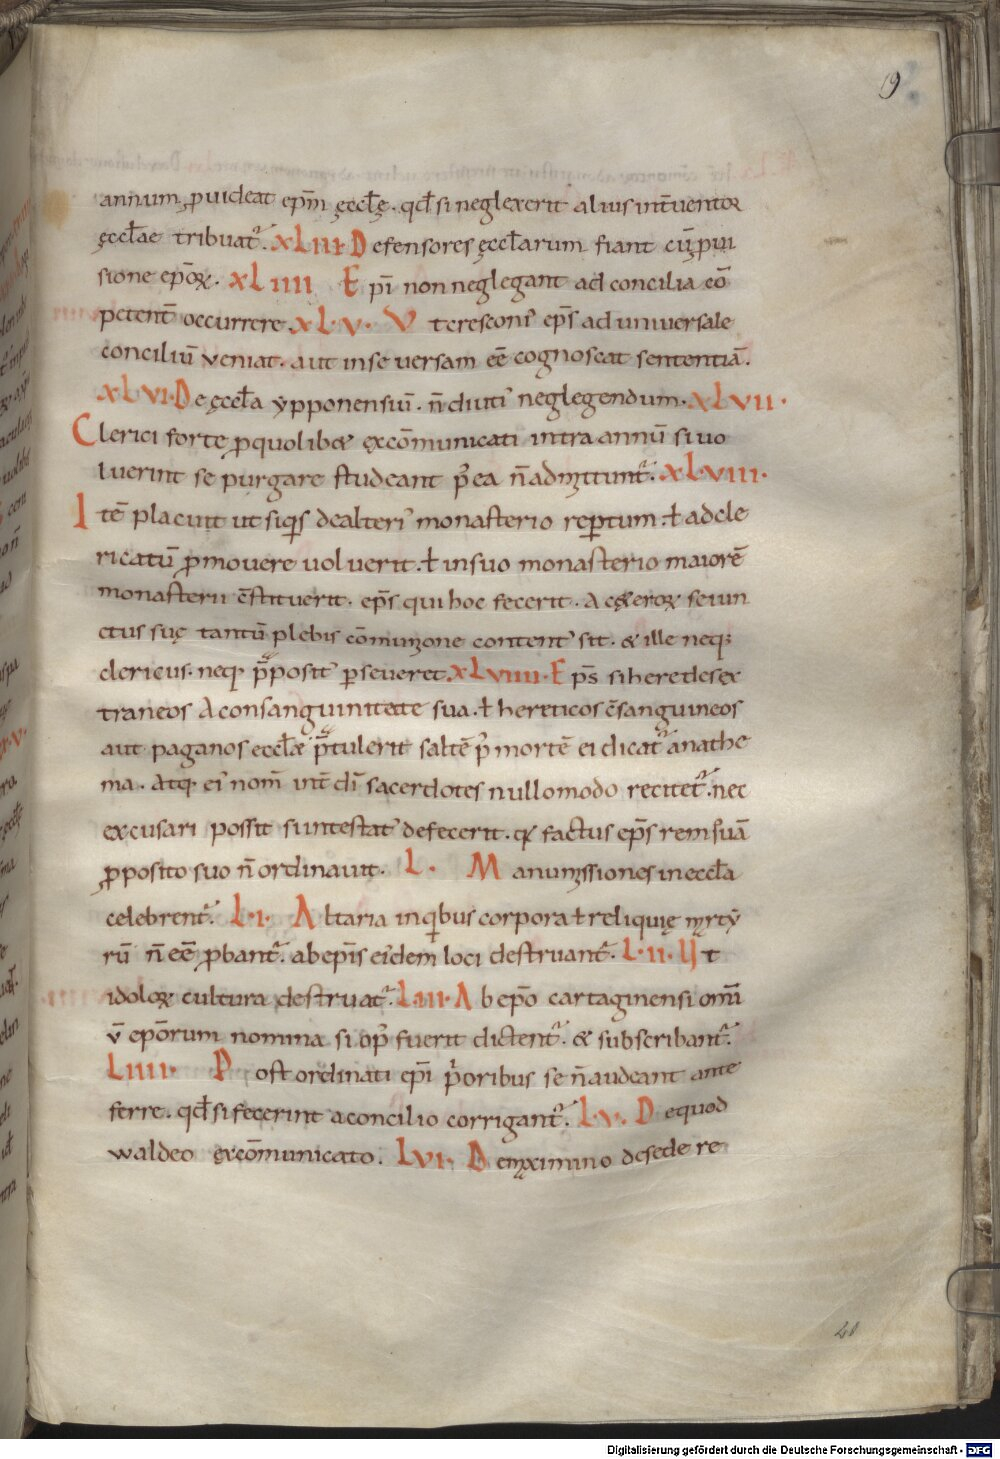 19
annum ꝓuideat ep̄m ęccl̄ę. qd̄ si neglexerit alius int̄uentor
ęccl̄ae tribuat᷒. XLIII. Defensores ęccl̄arum fiant cū ꝓui
sione ep̄oꝝ. XLIIII Ep̄i non neglegant ad concilia cō
petent̄ occurrere. XLV. Ut cresconi᷒ ep̄s ad uniuersale
conciliū veniat. aut in se versam eē cognoscat sententiā.
XLVI. De ęccl̄a ypponensiū. n̄ diuti᷒ neglegendum. XLVII.
Clerici forte ꝓ quolib& excōmunicati intra annū si uo
luerint se purgare studeant p᷒ ea n̄ admittunt᷒. XLVIII.
Itē placuit ut si qͥs de alteri᷒ monasterio rep̄tum. ł ad cle
ricatū ꝓmouere uoluerit. ł in suo monasterio maiorē
monasterii c̄stituerit. ep̄s qui hoc fecerit. A c&eroꝝ seiun
ctus suę tantū plebis cōmunione content᷒ sit. & ille neq;
clericus. neq; p̄posit᷒ ꝑseueret. XLVIIII. Ep̄s si heredes ex
traneos A consanguinitate sua. ł hereticos c̄sanguineos
aut paganos eccl̄ae p̄tulerit saltē p᷒ mortē ei dicat᷒ anathe
ma. Atq; ei᷒ nom̄ int̄ dī sacerdotes nullo modo recitet᷒. nec
excusari possit si intestat᷒ defecerit. qꝛ factus ep̄s rei suā
ꝓposito suo n̄ ordinauit. L. Manumissiones in eccl̄a
celebrent᷒. L.I. Altaria in qͥbus corpora ł reliquię mrty᷒
rū n̄ eē ꝓbant᷒. ab ep̄is ei᷒dem loci destruant᷒. L.II. Ut
idoloꝝ cultura destruat᷒. LIII. Ab ep̄o cartaginensi omīū
v̄ epōrum nomina si op᷒ fuerit dictent᷒. & subscribant᷒.
LIIII. Post ordinati ep̄i p̍oribus se n̄ audeant ante
ferre. qd̄ si fecerint a concilio corrigant᷒. L.V. De quod
waldeo excōmunicato. LVI. De maximino de sede re
Digitalisierung gefördert durch die Deutsche Forschungsgemeinschaft - DFG